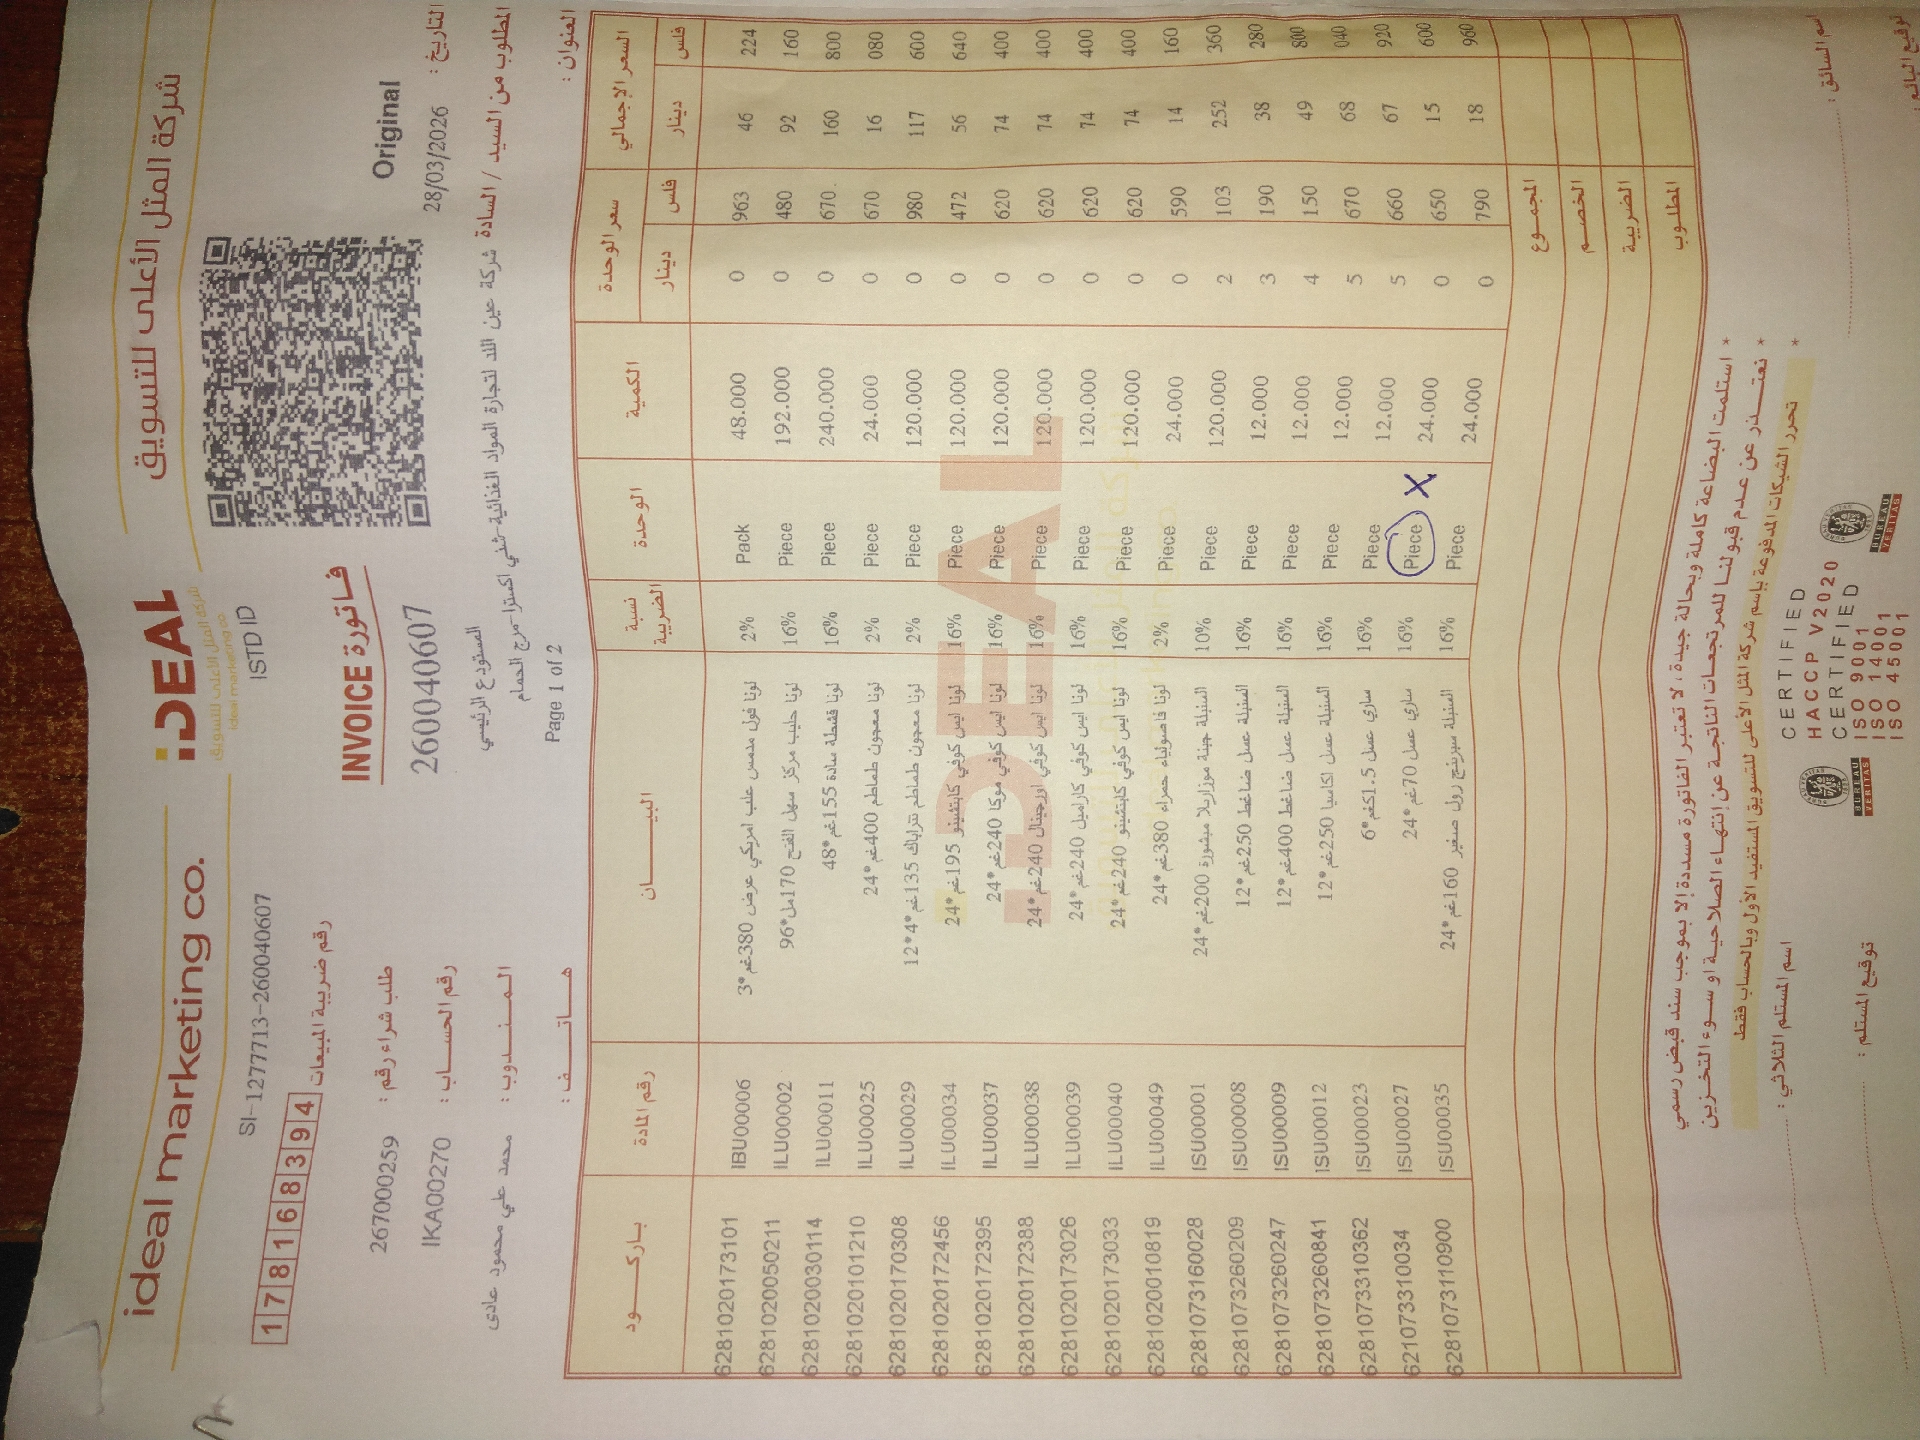 ideal marketing co.
شركة المثل الأعلى للتسويق
iDEAL
شركة المثل الأعلى للتسويق
ideal marketing co.
SI-1277713-2600040607
ISTD ID
178168394
رقم ضريبة المبيعات
INVOICE فاتورة
Original
طلب شراء رقم : 2670000259
2600040607
التاريخ : 28/03/2026
رقم الحساب : IKA00270
المستودع الرئيسي
المطلوب من السيد / السادة شركة عين اللد لتجارة المواد الغذائية-شني اكسترا-مرج الحمام
المندوب : محمد علي محمود عادى
Page 1 of 2
العنوان :
هاتف :
باركود رقم المادة البيان نسبة الضريبة الوحدة الكمية سعر الوحدة السعر الإجمالي
دينار فلس دينار فلس
6281020173101 IBU00006 لونا فول مدمس علب امريكي عرض 380غم*3 2% Pack 48.000 0 963 46 224
6281020050211 ILU00002 لونا حليب مركز سهل الفتح 170مل*96 16% Piece 192.000 0 480 92 160
6281020030114 ILU00011 لونا قشطة سادة 155غم*48 16% Piece 240.000 0 670 160 800
6281020101210 ILU00025 لونا معجون طماطم 400غم*24 2% Piece 24.000 0 670 16 080
6281020170308 ILU00029 لونا معجون طماطم تتراباك 135غم*4*12 2% Piece 120.000 0 980 117 600
6281020172456 ILU00034 لونا ايس كوفي كابتشينو 195غم*24 16% Piece 120.000 0 472 56 640
6281020172395 ILU00037 لونا ايس كوفي موكا 240غم*24 16% Piece 120.000 0 620 74 400
6281020172388 ILU00038 لونا ايس كوفي اورجينال 240غم*24 16% Piece 120.000 0 620 74 400
6281020173026 ILU00039 لونا ايس كوفي كاراميل 240غم*24 16% Piece 120.000 0 620 74 400
6281020173033 ILU00040 لونا ايس كوفي كابتشينو 240غم*24 16% Piece 120.000 0 620 74 400
6281020010819 ILU00049 لونا فاصولياء حمراء 380غم*24 2% Piece 24.000 0 590 14 160
6281073160028 ISU00001 السنبلة جبنة موزاريلا مبشورة 200غم*24 10% Piece 120.000 2 103 252 360
6281073260209 ISU00008 السنبلة عسل ضاغط 250غم*12 16% Piece 12.000 3 190 38 280
6281073260247 ISU00009 السنبلة عسل ضاغط 400غم*12 16% Piece 12.000 4 150 49 800
6281073260841 ISU00012 السنبلة عسل اكاسيا 250غم*12 16% Piece 12.000 5 670 68 040
6281073310362 ISU00023 ساري عسل 1.5كغم*6 16% Piece 12.000 5 660 67 920
6210733310034 ISU00027 ساري عسل 70غم*24 16% Piece X 24.000 0 650 15 600
6281073110900 ISU00035 السنبلة سبرينج رول صغير 160غم*24 16% Piece 24.000 0 790 18 960
المجموع
الخصم
الضريبة
المطلوب
* استلمت البضاعة كاملة وبحالة جيدة ، لا تعتبر الفاتورة مسددة إلا بموجب سند قبض رسمي
* نعتذر عن عدم قبولنا للمرتجعات الناتجة عن إنتهاء الصلاحية او سوء التخزين
* تحرر الشيكات المدفوعة بإسم شركة المثل الأعلى للتسويق المستفيد الأول وبالحساب فقط
اسم المستلم الثلاثي :
اسم السائق :
توقيع المستلم :
توقيع البائع :
CERTIFIED
HACCP V2020
CERTIFIED
ISO 9001
ISO 14001
ISO 45001
BUREAU VERITAS
BUREAU VERITAS